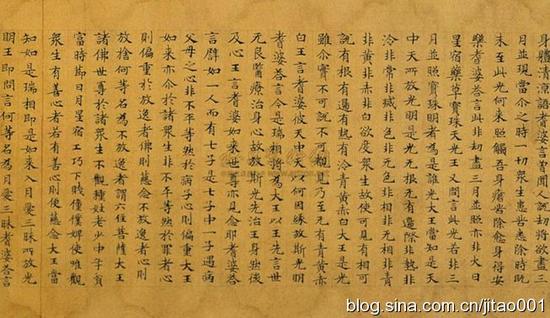 身體清涼語耆婆言曾聞人說劫將欲盡三
月並現當尒之時一切衆生患苦悉除時既
未至此光何來照觸吾身瘡苦除愈身得安
樂耆婆荅言此非劫盡三月並照亦非火日
星宿藥草寶珠天光王又問言此光若非三
月並照寶珠明者為是誰光大王當知是天
中天所放光明是光无根无有邊際非熱非
冷非常非滅非色非无色非相非无相非青
非黃非赤非白欲度衆生故使可見有相可
說有根有邊有熱有冷青黃赤白大王是光
雖尒實不可說不可覩見乃至无有青黃赤
白王言耆婆彼天中天以何因緣放斯光明
耆婆荅言今是瑞相將為大王以王先言世
无良醫療治身心故放斯光先治王身然後
及心王言耆婆如來世尊亦見念耶耆婆荅
言譬如一人而有七子是七子中一子遇病
父母之心非不平等然於病子心則偏重大王
如來亦尒於諸衆生非不平等然於罪者心
則偏重於放逸者佛則慈念不放逸者心則
放捨何等名為不放逸者謂六住菩薩大王
諸佛世尊於諸衆生不觀種姓老少中年貧
富時節日月星宿工巧下賤僮僕婢使唯觀
衆生有善心者若有善心則便慈念大王當
知如是瑞相即是如來入月愛三昧所放光
明王即問言何等名為月愛三昧耆婆荅言
blog.sina.com.cn/jitao001